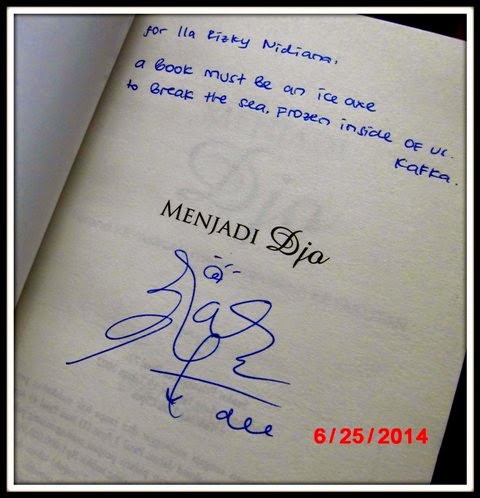 for Ila Rizky Nidiana,
a book must be an ice axe
to break the sea, frozen inside of us.
Kafka.
MENJADI Djo
dee
6/25/2014